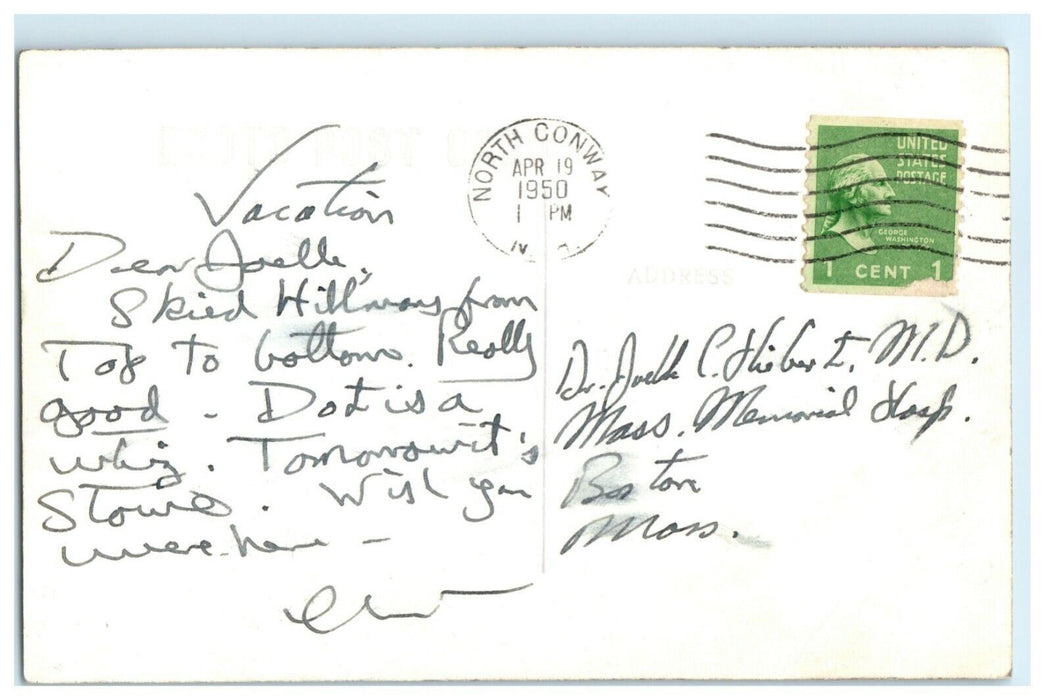 PHOTO POST
NORTH CONWAY
APR 19
1950
1 PM
N. H.
UNITED
STATES
POSTAGE
GEORGE
WASHINGTON
1 CENT 1
ADDRESS
Vacation
Dear Joelle,
Skied Hillmans from
Top to bottom. Really
good - Dot is a
whiz. Tomorow it's
Stowe. Wish you
were here -
Dr. Joelle C. Hiebert, M.D.
Mass. Memorial Hosp.
Boston
Mass.